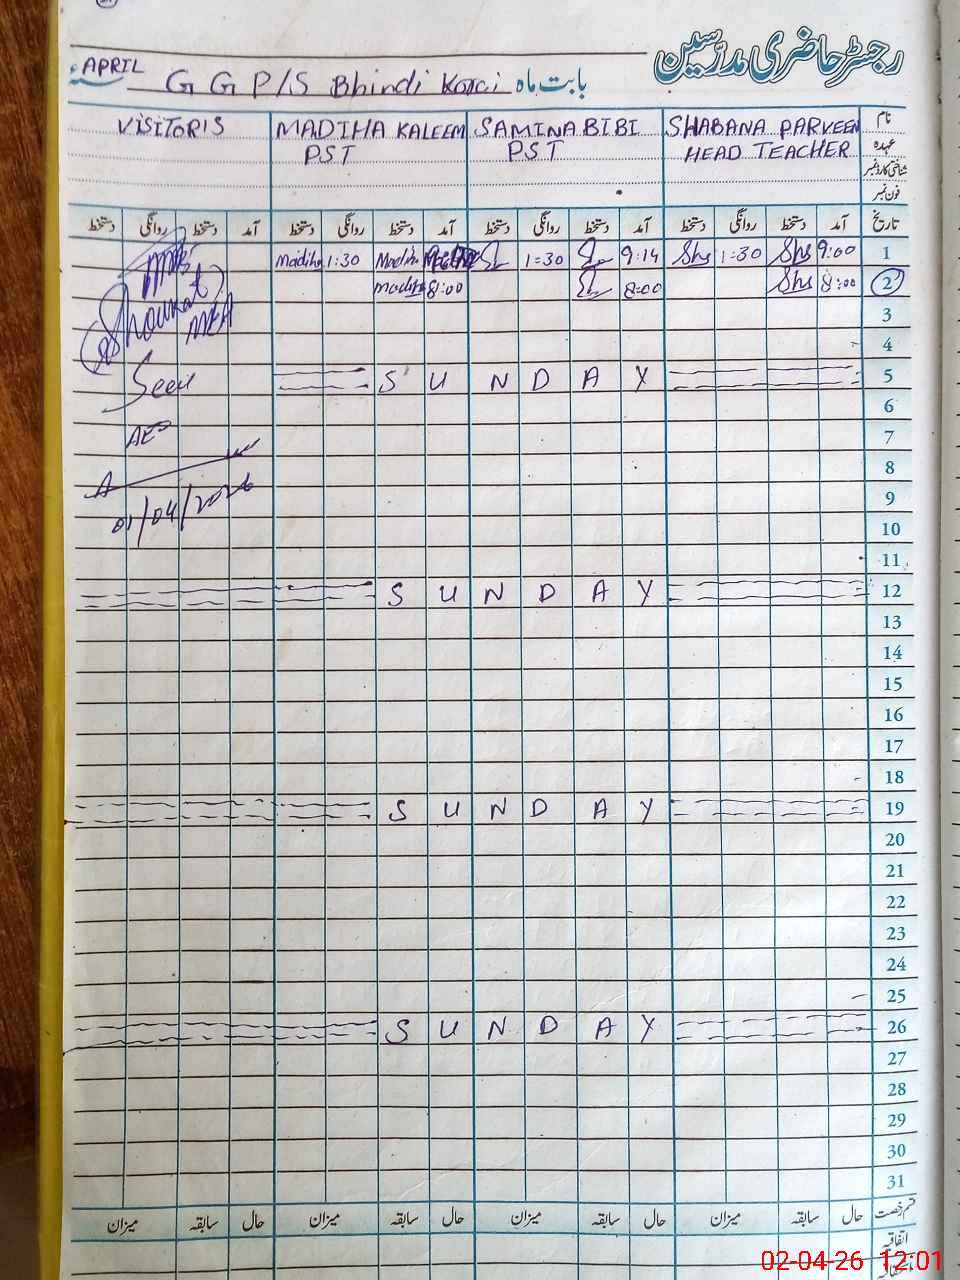 رجسٹر حاضری مدرسین
APRIL G G P/S Bhindi Korai بابت ماہ
نام SHABANA PARVEEN SAMINA BIBI MADIHA KALEEM VISITORIS
عہدہ HEAD TEACHER PST PST
شناختی کارڈ نمبر
فون نمبر
تاریخ آمد دستخط روانگی دستخط آمد دستخط روانگی دستخط آمد دستخط روانگی دستخط آمد دستخط روانگی دستخط
1 9:00 Shs 1:30 Shs 9:14 1:30 Madiha 1:30 Madiha
2 8:00 Shs 8:00 8:00 Madiha
Shoukat
MEA
3
4
5 S U N D A Y
Seen
6
7
AEO
8
9
01/04/2026
10
11
12 S U N D A Y
13
14
15
16
17
18
19 S U N D A Y
20
21
22
23
24
25
26 S U N D A Y
27
28
29
30
31
قسم رخصت حال سابقہ میزان حال سابقہ میزان حال سابقہ میزان حال سابقہ میزان
اتفاقیہ
02-04-26 12:01